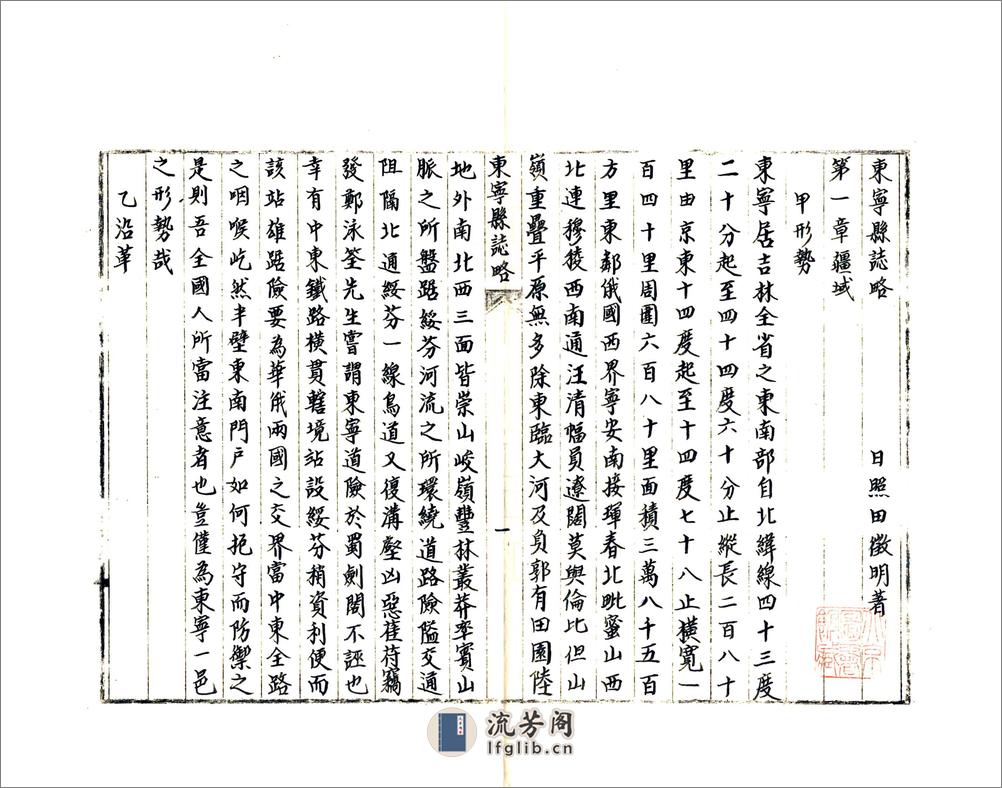 東寧縣誌略
日照田徵明著
第一章疆域
甲形勢
東寧居吉林全省之東南部自北緯線四十三度
二十分起至四十四度六十分止縱長二百八十
里由京東十四度起至十四度七十八止橫寬一
百四十里周圍六百八十里面積三萬八千五百
方里東鄰俄國西界寧安南接琿春北毗蜜山西
北連穆稜西南通汪清幅員遼闊莫與倫比但山
嶺重疊平原無多除東臨大河及負郭有田園陸
東寧縣誌略
一
地外南北西三面皆崇山峻嶺豐林叢莽率賓山
脈之所盤踞綏芬河流之所環繞道路險隘交通
阻隔北通綏芬一線鳥道又復溝壑凶惡萑苻竊
發鄭泳筌先生嘗謂東寧道險於蜀劍閣不誣也
幸有中東鐵路橫貫轄境站設綏芬稍資利便而
該站雄踞險要為華俄兩國之交界當中東全路
之咽喉屹然半壁東南門戶如何扼守而防禦之
是則吾全國人所當注意者也豈僅為東寧一邑
之形勢哉
乙沿革
流芳阁
lfglib.cn